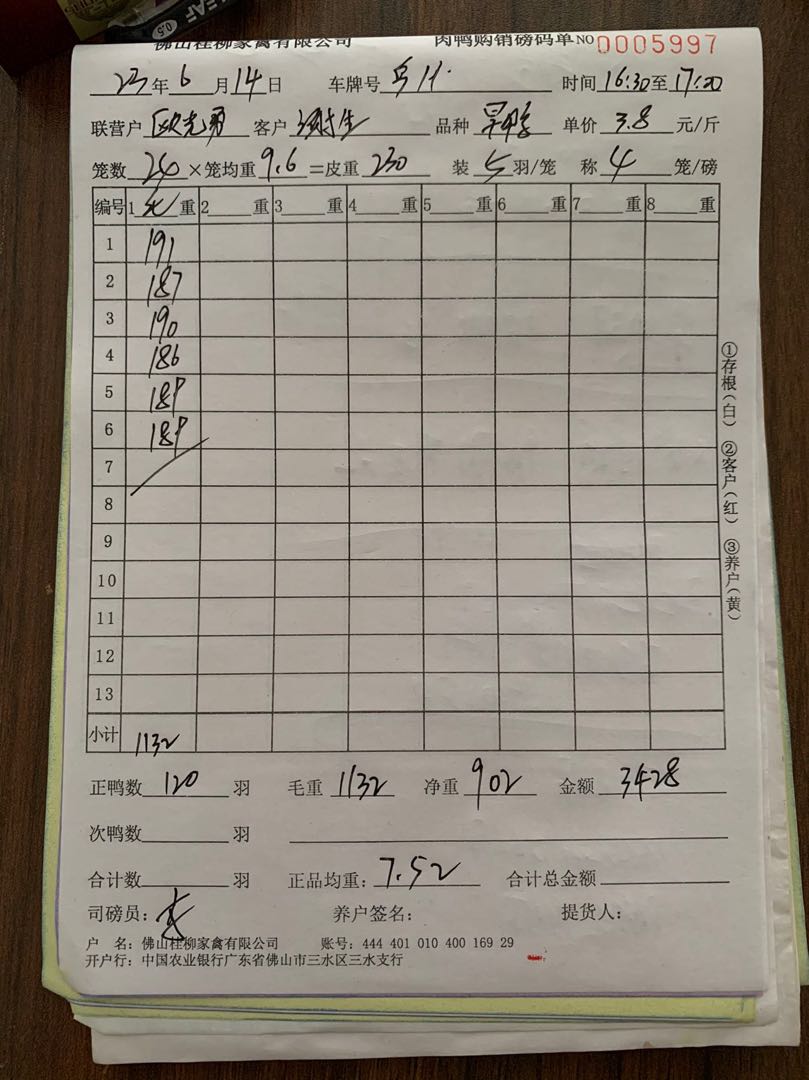 佛山桂柳家禽有限公司 肉鸭购销磅码单 NO 0005997
23年6月14日 车牌号 时间16:30至17:20
联营户 欧志勇 客户 谢生 品种 单价 3.8 元/斤
笼数 24 ×笼均重 9.6 =皮重 230 装 5 羽/笼 称 4 笼/磅
编号 1 毛 重 2 重 3 重 4 重 5 重 6 重 7 重 8 重
1 191
2 187
3 190
4 186
5 189
6 189
7
8
9
10
11
12
13
小计 1132
正鸭数 120 羽 毛重 1132 净重 902 金额 3428
次鸭数 羽
合计数 羽 正品均重：7.52 合计总金额
司磅员： 养户签名： 提货人：
户 名：佛山桂柳家禽有限公司 账号：444 401 010 400 169 29
开户行：中国农业银行广东省佛山市三水区三水支行
①存根(白) ②客户(红) ③养户(黄)
0.5